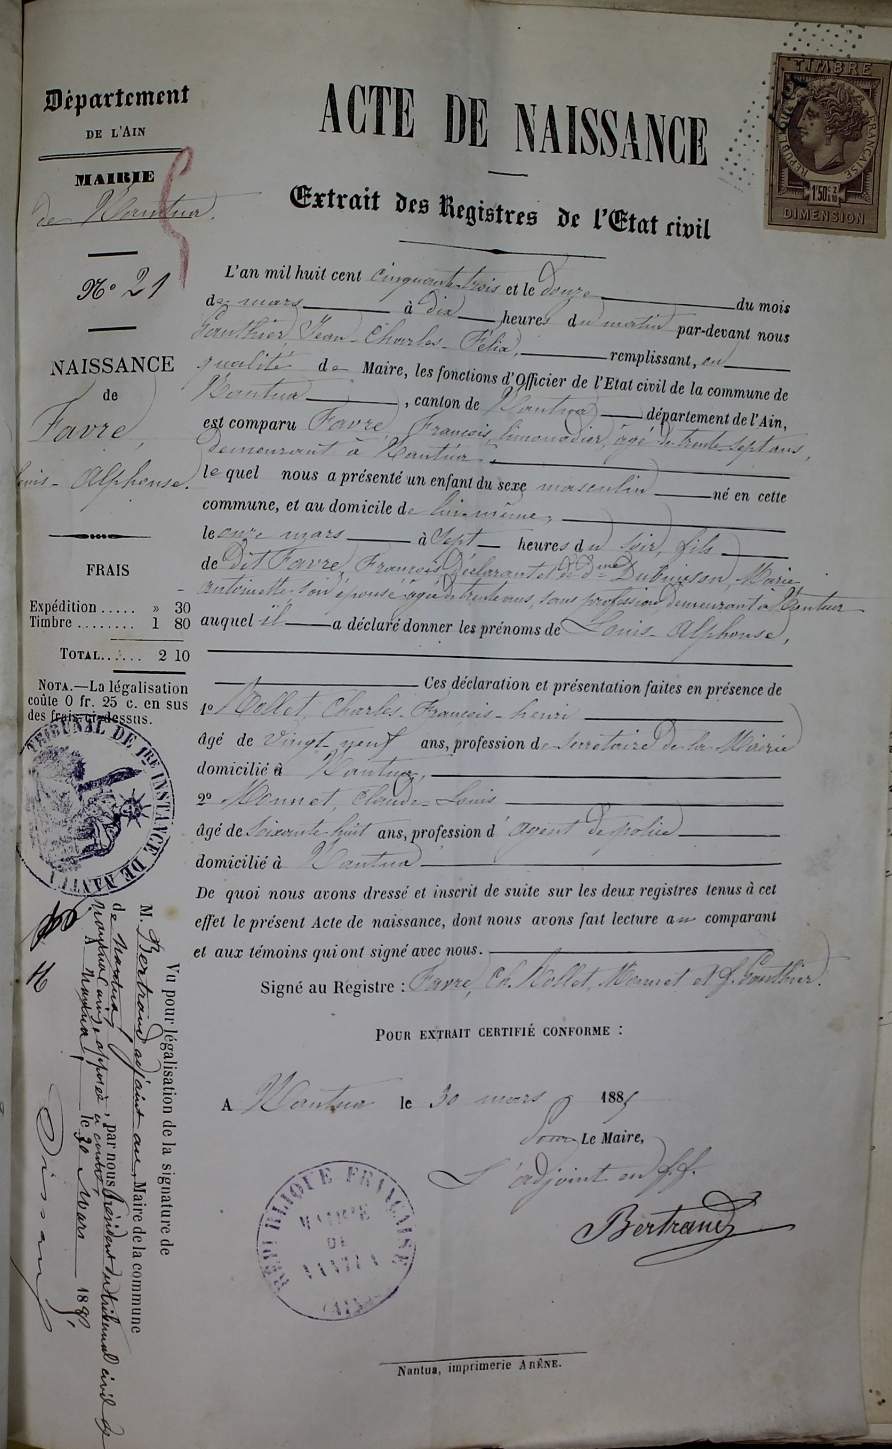 Département
DE L'AIN
MAIRIE
de Nantua.
No 21
NAISSANCE
de
Favre,
Louis-Alphonse.
FRAIS
Expédition ..... » 30
Timbre ........ 1 80
TOTAL...... 2 10
NOTA.—La légalisation
coûte 0 fr. 25 c. en sus
des frais ci-dessus.
TRIBUNAL DE 1RE INSTANCE DE NANTUA
TIMBRE
RÉPUBLIQUE FRANÇAISE
1f50c 2/10
DIMENSION
ACTE DE NAISSANCE
Extrait des Registres de l'Etat civil
L'an mil huit cent cinquante-trois et le douze du mois
de mars à dix heures du matin par-devant nous
Gauthier, Jean-Charles-Félix, remplissant, en
qualité de Maire, les fonctions d'Officier de l'Etat civil de la commune de
Nantua, canton de Nantua département de l'Ain,
est comparu Favre, François, limonadier, âgé de trente-sept ans,
demeurant à Nantua
le quel nous a présenté un enfant du sexe masculin né en cette
commune, et au domicile de lui-même,
le onze mars à Sept heures du soir, fils
de dit Favre, François, déclarant et de dme Dubuisson, Marie
antoinette son épouse âgée de trente ans, sans profession demeurant à Nantua
auquel il a déclaré donner les prénoms de Louis-Alphonse,
Ces déclaration et présentation faites en présence de
1o Mollet, Charles-François-henri
âgé de vingt-neuf ans, profession de secrétaire de la Mairie
domicilié à Nantua,
2o Monnet, Claude-Louis
âgé de soixante-huit ans, profession d'agent de police
domicilié à Nantua
De quoi nous avons dressé et inscrit de suite sur les deux registres tenus à cet
effet le présent Acte de naissance, dont nous avons fait lecture au comparant
et aux témoins qui ont signé avec nous.
Signé au Registre : Favre, Ch. Mollet, Monnet et f. Gauthier.
POUR EXTRAIT CERTIFIÉ CONFORME :
A Nantua le 30 mars 1885
Pour Le Maire,
L'adjoint en f.f.
Bertrand
RÉPUBLIQUE FRANÇAISE
MAIRIE
DE
NANTUA
(AIN)
Nantua, imprimerie ARÈNE.
Vu pour légalisation de la signature de
M. Bertrand adjoint au Maire de la commune
de Nantua, par nous Président du tribunal civil de
Nantua
A Nantua, le 30 Mars 1885